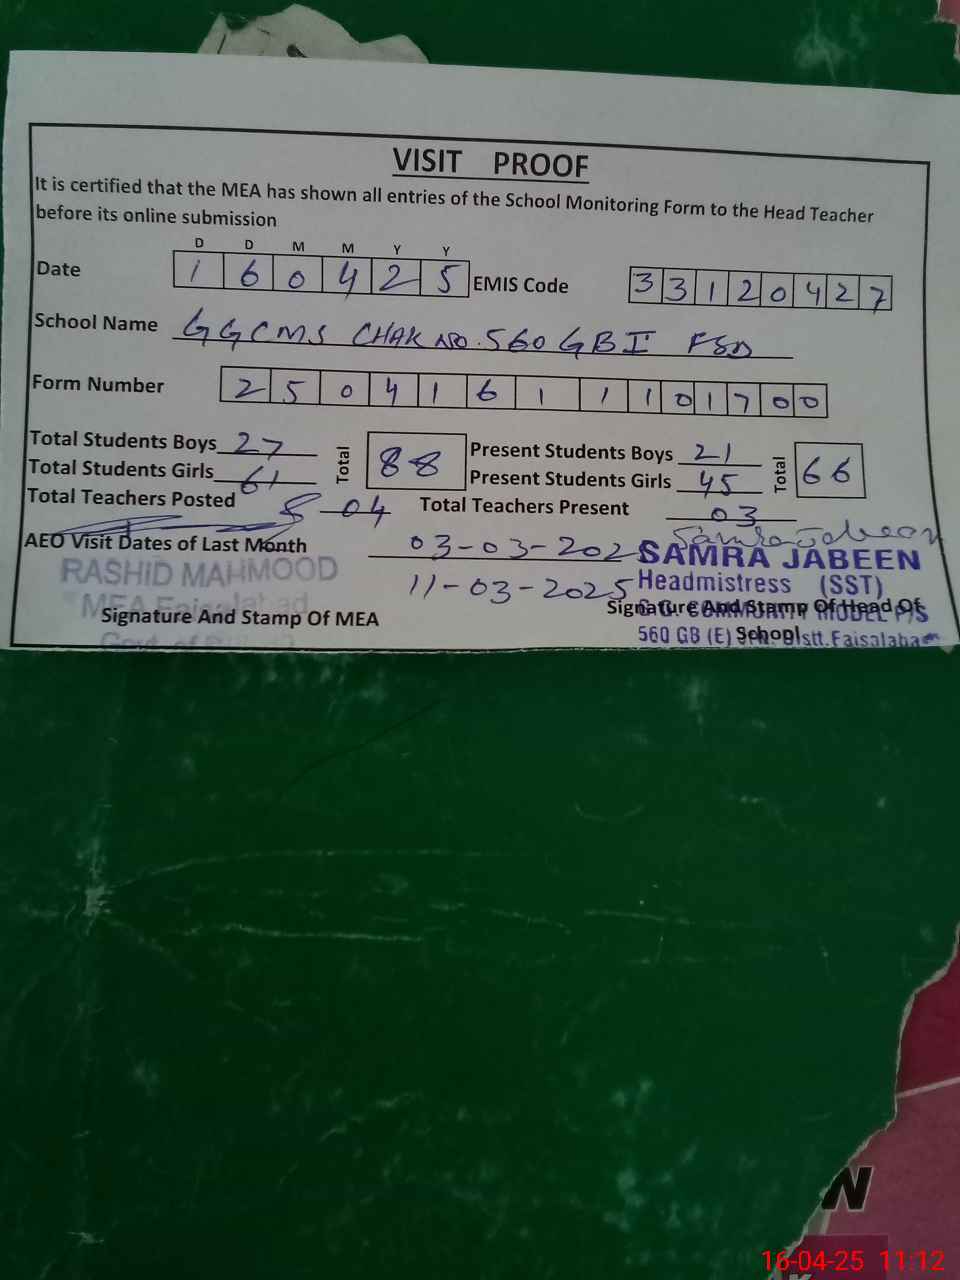 VISIT PROOF
It is certified that the MEA has shown all entries of the School Monitoring Form to the Head Teacher
before its online submission
D D M M Y Y
Date 1 6 0 4 2 5 EMIS Code 3 3 1 2 0 4 2 7
School Name GGCMS CHAK NO. 560 GB I FSD
Form Number 2 5 0 4 1 6 1 1 1 0 1 7 0 0
Total Students Boys 27 Total 88 Present Students Boys 21 Total 66
Total Students Girls 61 Present Students Girls 45
Total Teachers Posted 04 Total Teachers Present 03
Samra Jabeen
AEO Visit Dates of Last Month 03-03-202
SAMRA JABEEN
RASHID MAHMOOD
11-03-2025
Headmistress (SST)
MEA Faisalabad
Signature And Stamp Of MEA
Signature And Stamp Of Head Of
School
G.G. COMMUNITY MODEL P/S
560 GB (E) Distt. Faisalabad
Govt. of
N
16-04-25 11:12